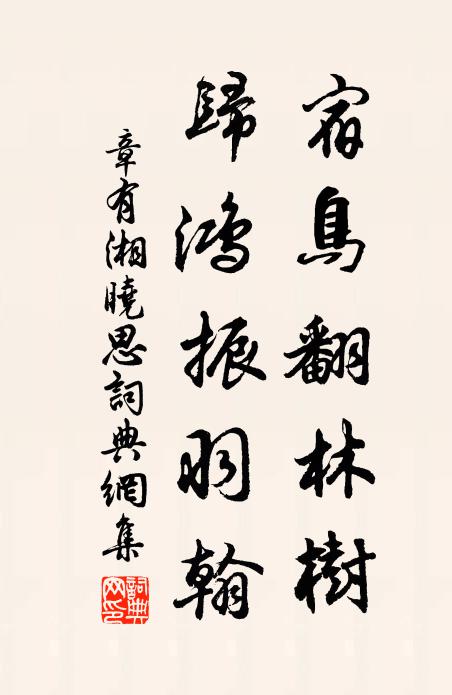 宿鳥翻林樹
歸鴻振羽翰
章有湘曉思詞典網集
詞典網印